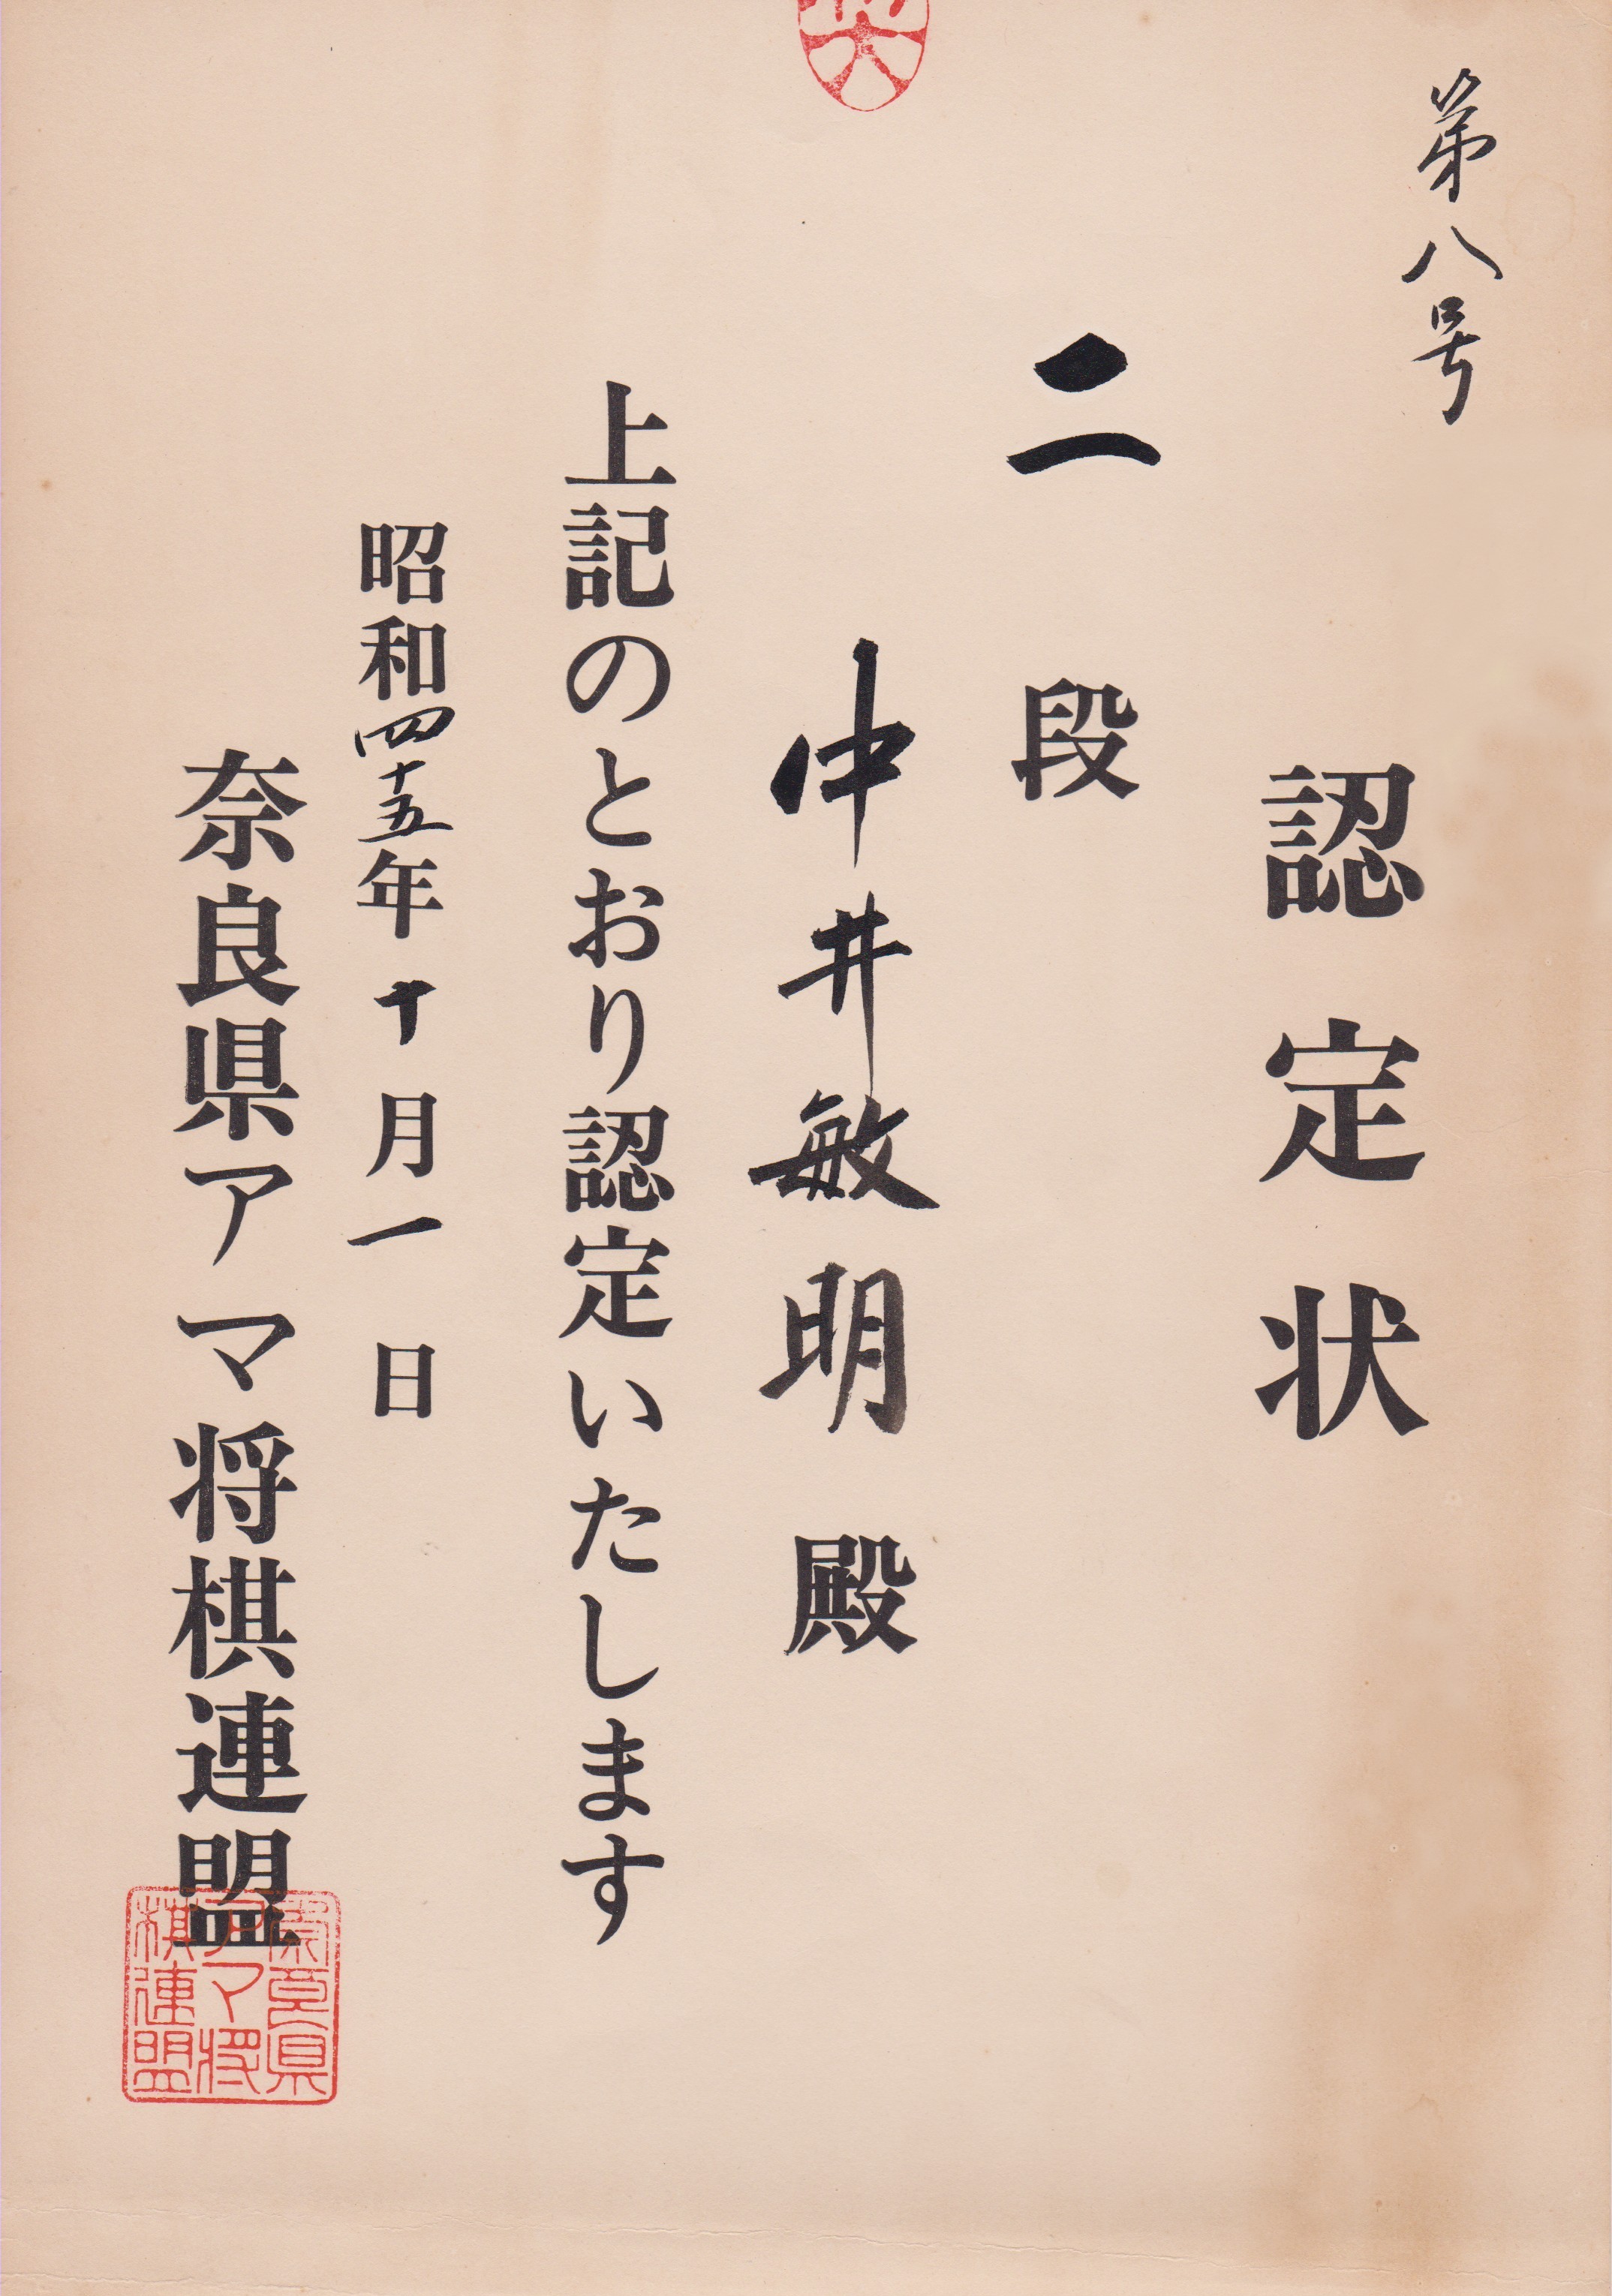 第八号
認定状
二段
中井敏明殿
上記のとおり認定いたします
昭和四十五年十月一日
奈良県アマ将棋連盟
奈良県
アマ将
棋連盟